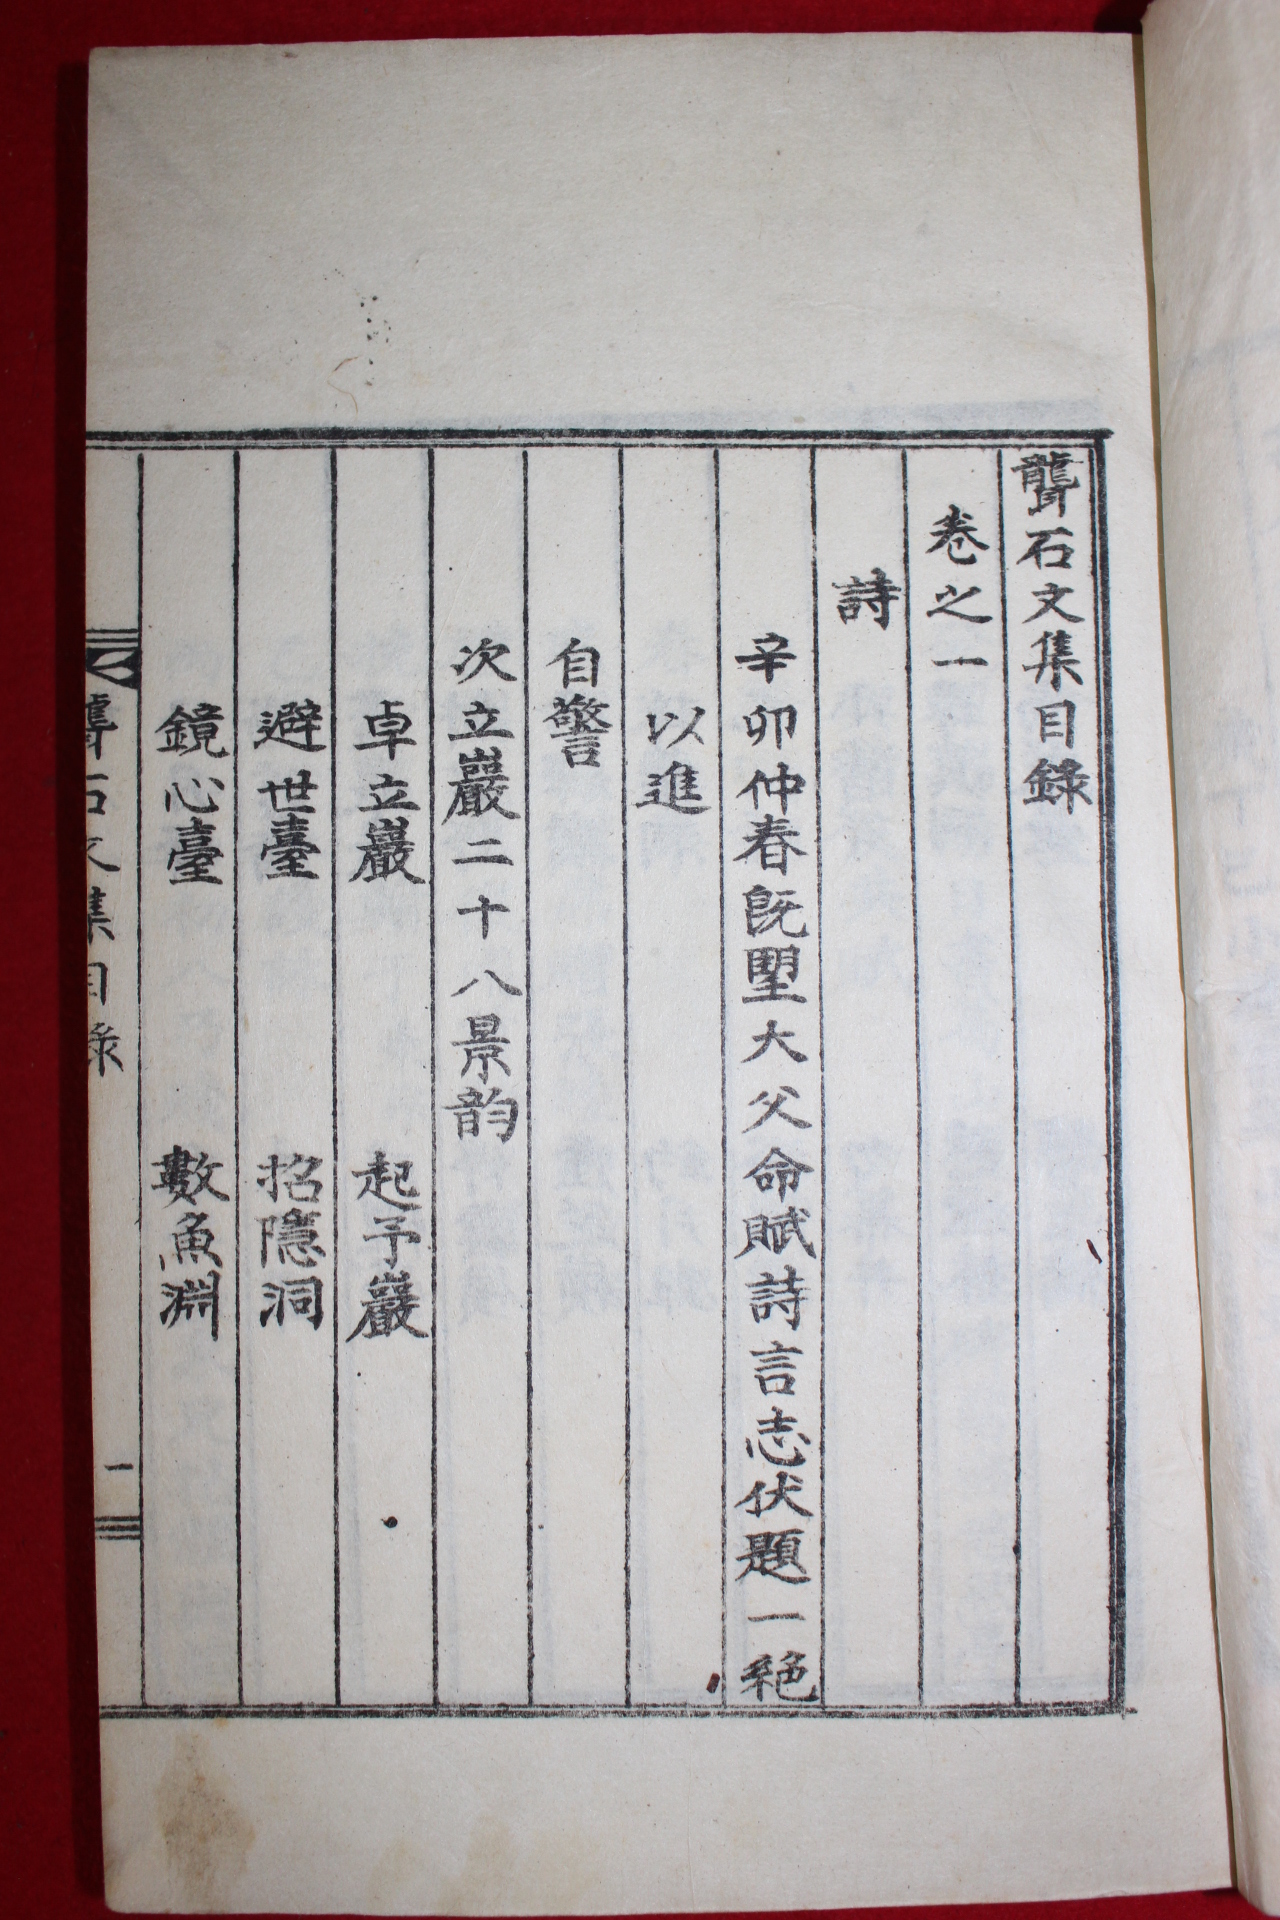 聾石文集目錄
卷之一
詩
辛卯仲春旣朢大父命賦詩言志伏題一絶
以進
自警
次立巖二十八景韵
卓立巖 起予巖
避世臺 招隱洞
鏡心臺 數魚淵
聾石文集目錄 一